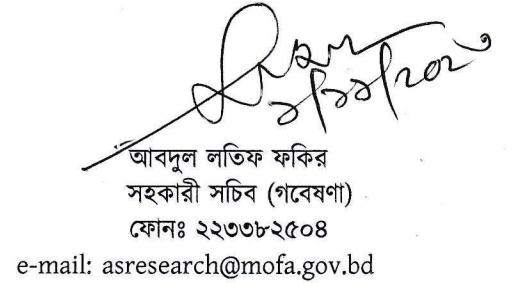 আবদুল লতিফ ফকির
সহকারী সচিব (গবেষণা)
ফোনঃ ২২৩৩৮২৫০৪
e-mail: asresearch@mofa.gov.bd